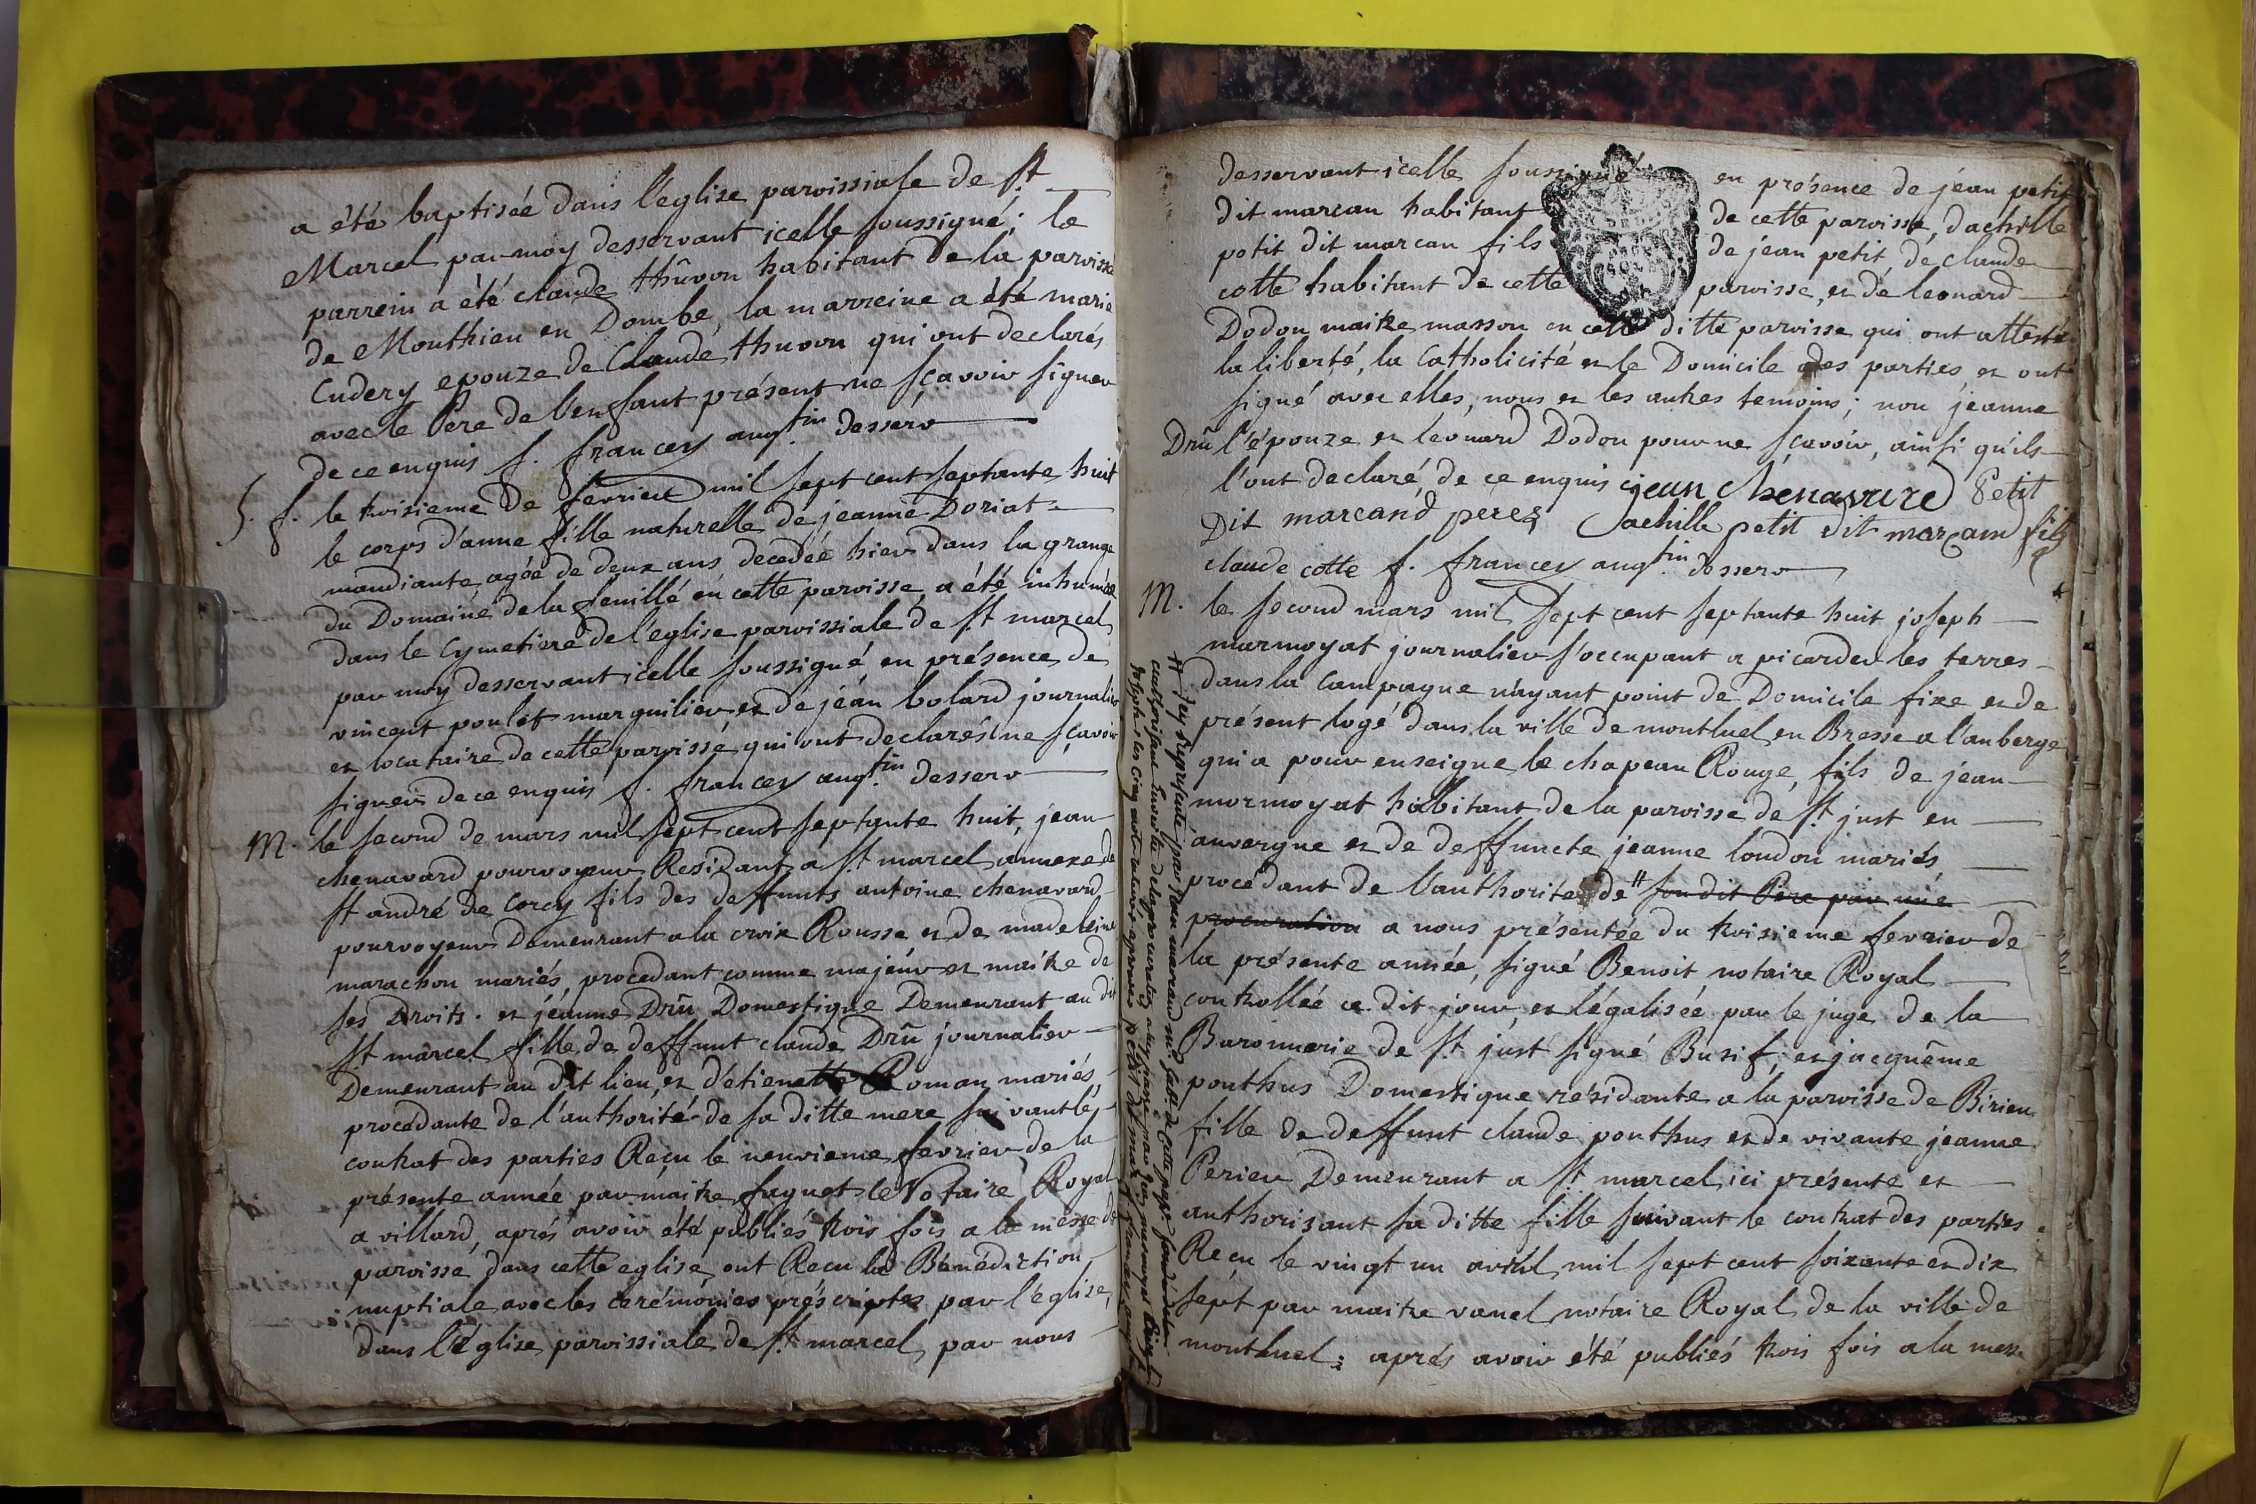 a été baptisée dans l'eglise paroissiale de St
Marcel par moy desservant icelle soussigné; le
parrein a été claude thûvon habitant de la paroisse
de Monthieu en Dombe, la marreine a été marie
Cudery epouze de Claude thuvon qui ont declarés
avec le Père de l'enfant présent ne sçavoir signer
de ce enquis f. francey augtin desserv
S. f. le troisieme de fevrier mil sept cent septante huit
le corps d'anne fille naturelle de jeanne Doriat
mandiante, agée de deux ans decedée hier dans la grange
du Domaine de la feuillé en cette paroisse, a été inhumée
dans le Cymetiere de l'eglise paroissiale de St marcel
par moy desservant icelle soussigné en présence de
vincent poulet marguilier et de jean bolard journalier
et locataire de cette paroisse, qui ont declarés ne sçavoir
signer de ce enquis f. francey augtin desserv
M. le second de mars mil sept cent septante huit, jean
chenavard pourvoyeur Residant a St marcel annexe de
St andré de Corcy fils des deffunts antoine chenavard
pourvoyeur Demeurant a la croix Rousse et de madeleine
marachon mariés, procedant comme majeur et maitre de
ses Droits. et jeanne Drû Domestique Demeurant au dit
St marcel fille de deffunt claude Drû journalier
Demeurant au dit lieu, et d'étienette Roman mariés,
procédante de l'authorité de sa ditte mere suivant le
contrat des parties Reçu le neuvieme fevrier de la
présente année par maitre faguet le Notaire Royal
a villard, aprés avoir été publiés trois fois a la messe de
paroisse dans cette eglise, ont Recu la Bénédiction
nuptiale avec les cerémonies préscriptes par l'église,
dans l'église paroissiale de St marcel par nous
desservant icelle soussigné en présence de jean petit
dit marcan habitant de cette paroisse, d'achille
petit dit marcan fils de jean petit, de claude
cotte habitant de cette paroisse, et de leonard
Dodon maitre masson en cette ditte paroisse qui ont attesté
la liberté, la Catholicité et le Domicile des parties et ont
signé avec elles, nous et les autres temoins; non jeanne
Drû l'épouze et léonard Dodon pour ne sçavoir, ainsi qu'ils
l'ont declaré de ce enquis jean chénavard Petit
Dit marcand pere achille petit dit marcam fils
claude cotte f. francey augtin desserv
M. le second mars mil sept cent septante huit joseph
marmoyat journalier s'occupant a picarder les terres
dans la campagne n'ayant point de Domicile fixe et de
présent logé dans la ville de montluel en Bresse a l'auberge
qui a pour enseigne le chapeau Rouge, fils de jean
mormoyat habitant de la paroisse de St just en
auvergne et de deffuncte jeanne loudon mariés
procédant de l'authorité de # son dit Père par une
procuration a nous présentée du troisieme fevrier de
la présente année, signé Benoit notaire Royal
controllée ce dit jour, et légalisée par le juge de la
Baronnerie de St just signé Busif; et jacquême
ponthus Domestique résidante a la paroisse de Birieu
fille de deffunt claude ponthus et de vivante jeanne
Périer Demeurant a St marcel, ici présente et
authorisant sa ditte fille suivant le contrat des parties
Reçu le vingt un avril mil sept cent soixante et dix
sept par maitre vanel notaire Royal de la ville de
montluel; aprés avoir été publiés trois fois a la messe
# icy represente par